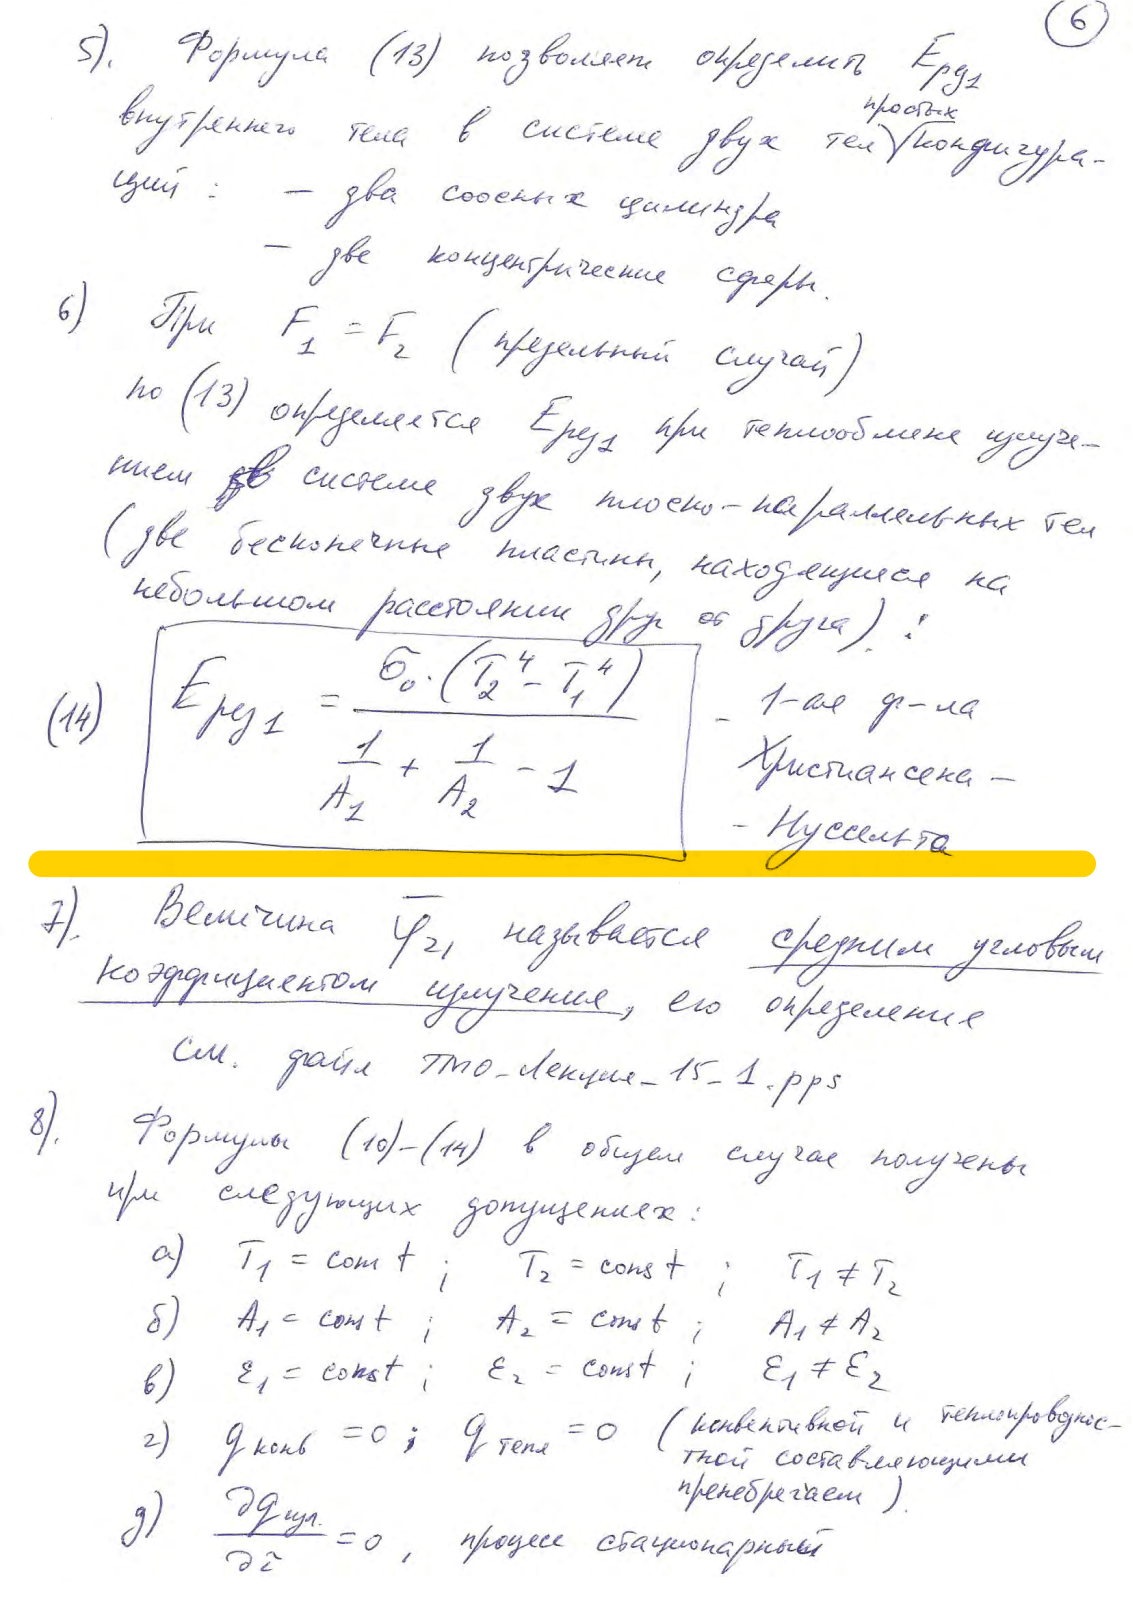 6
5). Формула (13) позволяет определить Eрез1
простых
внутреннего тела в системе двух тел √конфигура-
ций: – два соосных цилиндра
– две концентрические сферы.
6) При F1 = F2 (предельный случай)
по (13) определяется Eрез1 при теплообмене излуче-
нием в системе двух плоско-параллельных тел
(две бесконечные пластины, находящиеся на
небольшом расстоянии друг от друга):
(14) Eрез1 = σ0·(T2⁴ – T1⁴) / (1/A1 + 1/A2 – 1) – 1-ая ф-ла
Христиансена –
– Нуссельта
7). Величина φ̄21 называется средним угловым
коэффициентом излучения, его определение
см. файл ТМО_Лекция_15_1.pps
8). Формулы (10)–(14) в общем случае получены
при следующих допущениях:
а) T1 = const; T2 = const; T1 ≠ T2
б) A1 = const; A2 = const; A1 ≠ A2
в) ε1 = const; ε2 = const; ε1 ≠ ε2
г) qконв = 0; qтепл = 0 (конвективной и теплопроводнос-
тной составляющими
пренебрегаем).
д) ∂qизл./∂τ = 0, процесс стационарный